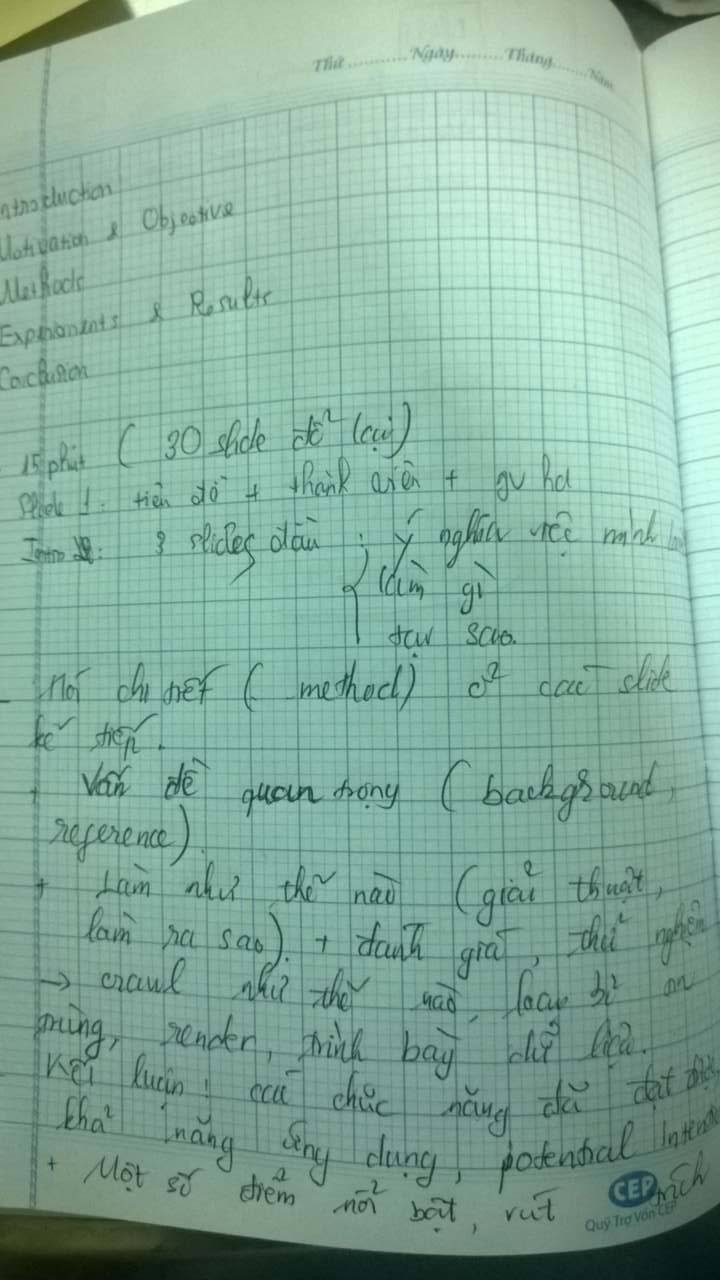 Thứ..........Ngày.........Tháng.......Năm
ntroduction
Motivation & Objective
Methods
Experiments & Results
Conclusion
15 phút ( 30 slide đổ lại)
Slide 1: tiến độ + thành viên + gv hd
Intro : 3 slides đầu : ý nghĩa việc mình
làm gì
tại sao.
- Nói chi tiết ( method) ở các slide
kế tiếp.
+ Vấn đề quan trọng ( background,
reference)
+ Làm như thế nào (giải thuật,
làm ra sao). + đánh giá, thử nghiệm
→ crawl như thế nào, loại bỏ
trùng, render, trình bày dữ liệu.
Kết luận : các chức năng đã đạt
khả năng ứng dụng, potential
+ Một số điểm nổi bật, rút trích
CEP
Quỹ Trợ Vốn CEP